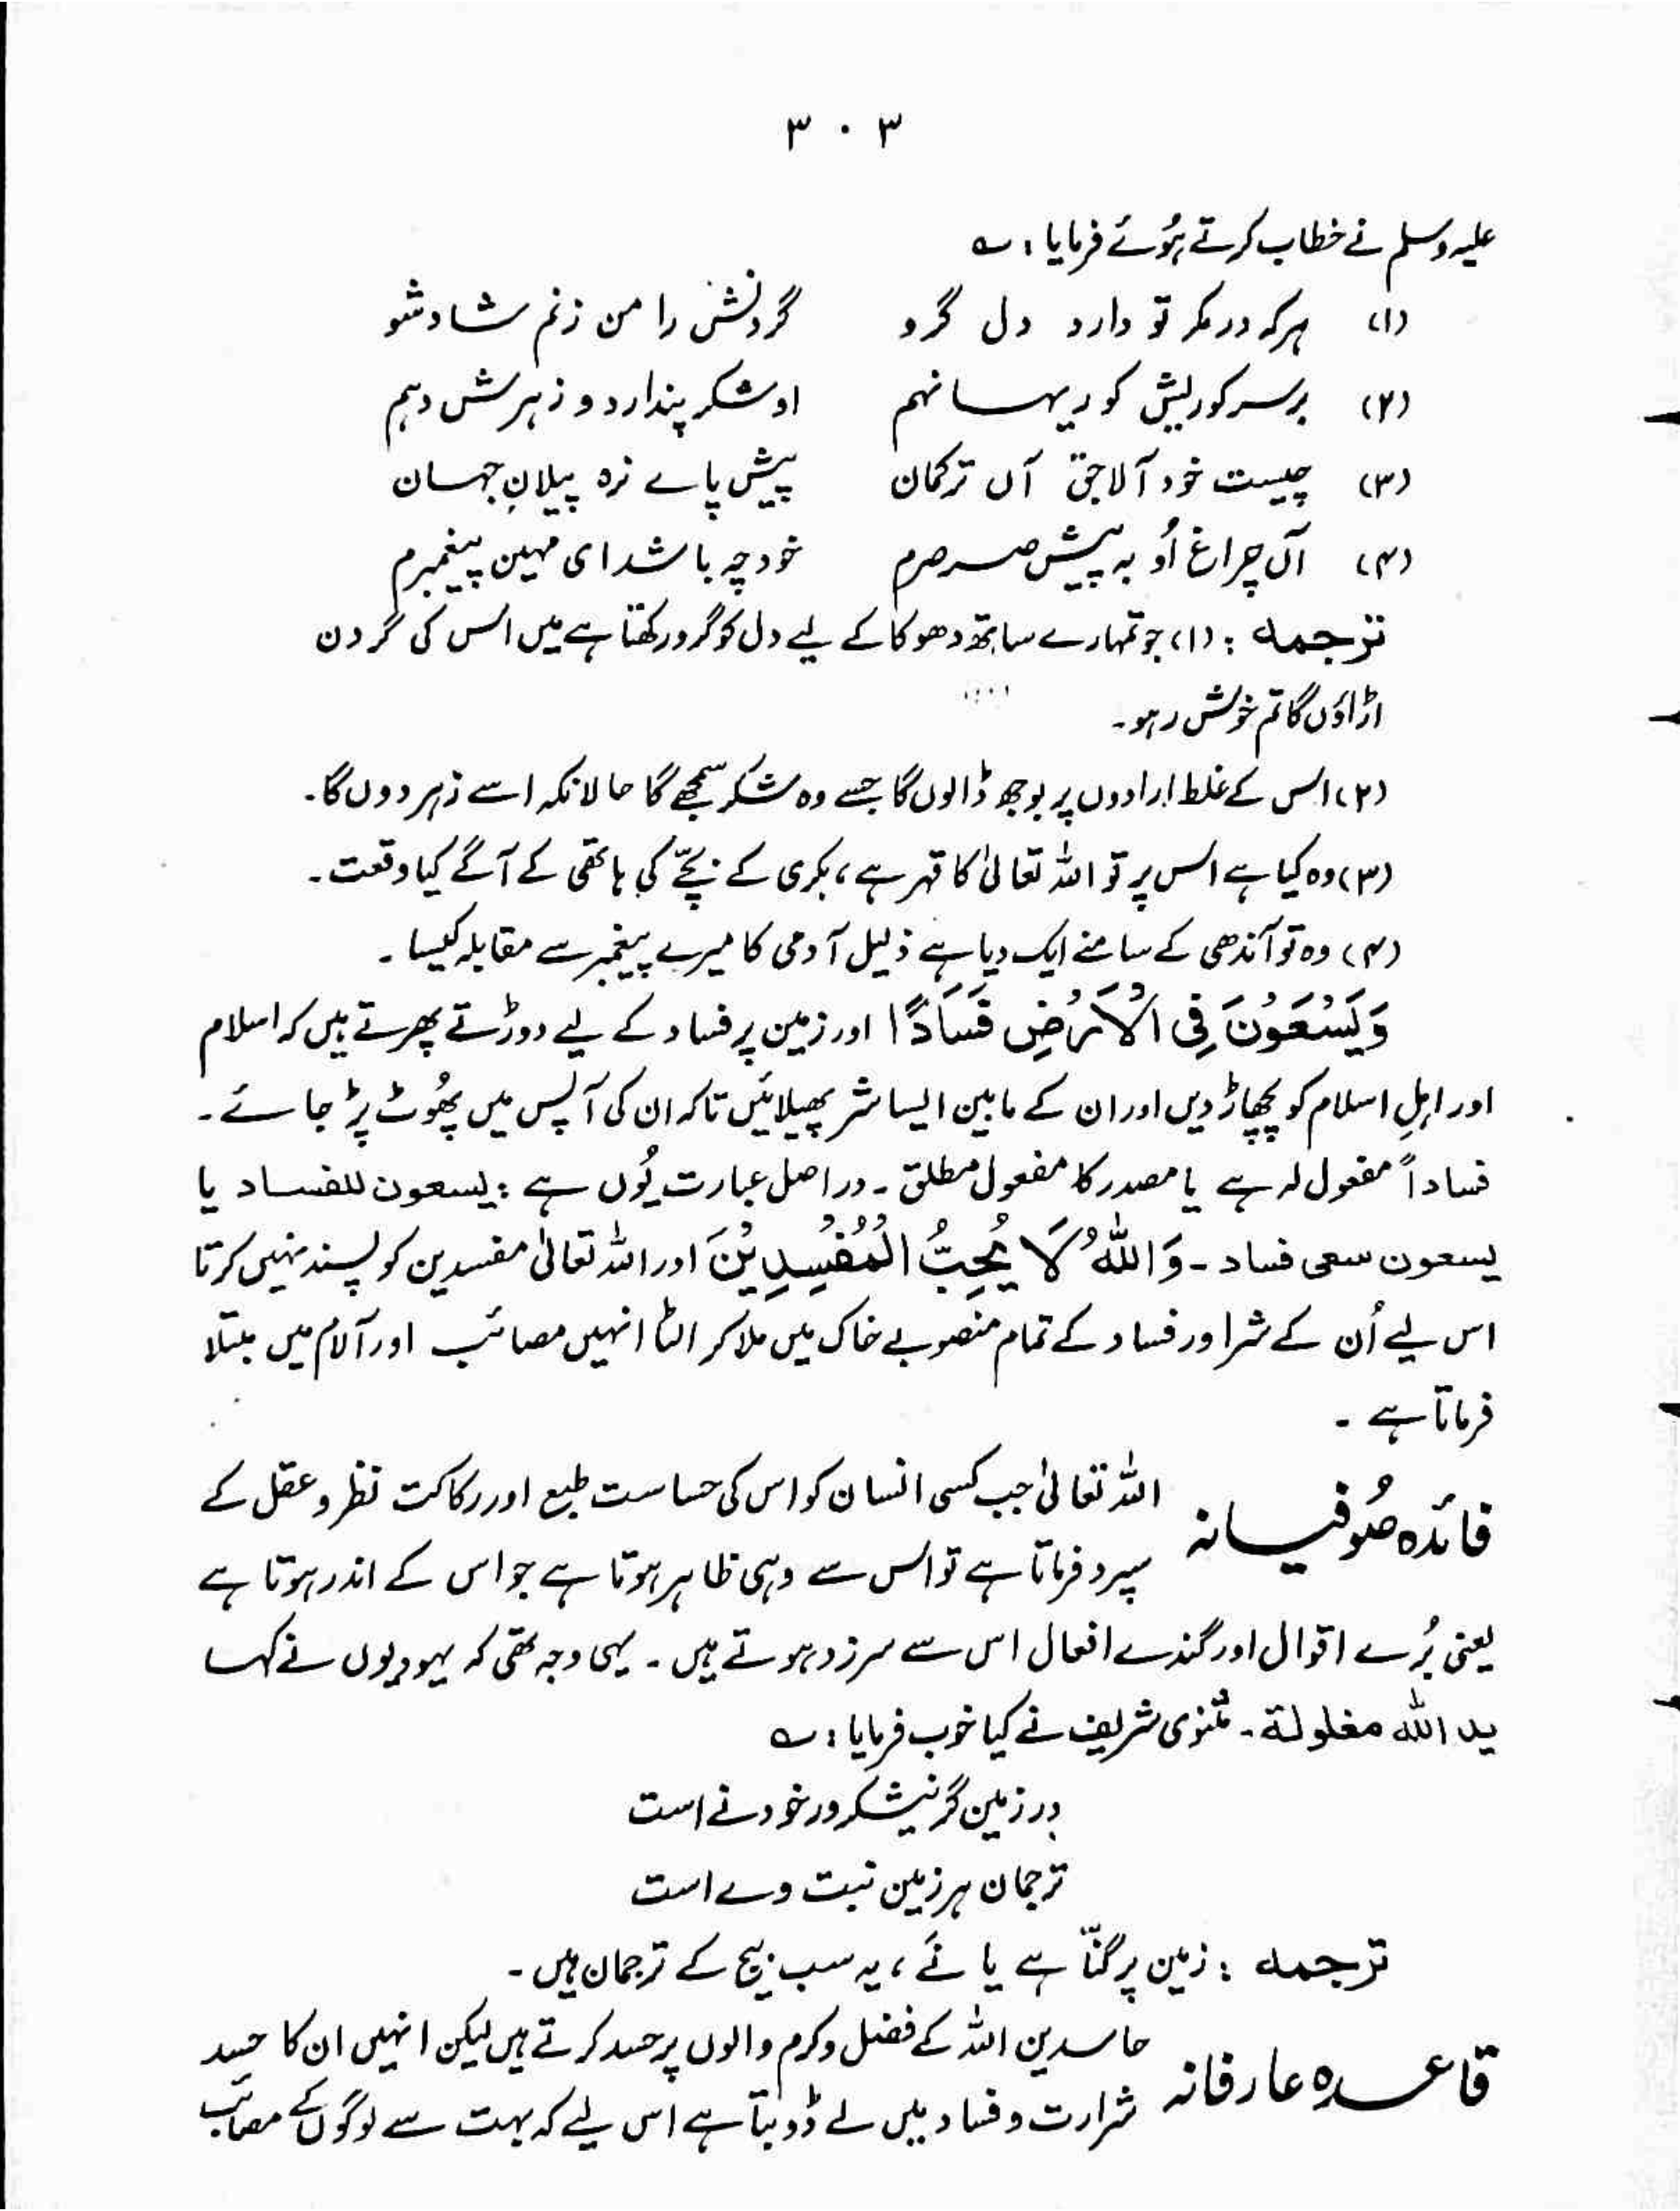 ۳۰۳
علیہ وسلم نے خطاب کرتے ہُوئے فرمایا : ؎
(۱) ہرکہ در مکر تو دارد دل گرو گردنش را من زنم شاد شو
(۲) برسر کوریش کوریہا نہم او شکر پندارد و زہرش دہم
(۳) چیست خود آلاجق آں ترکمان پیش پاے نرہ پیلانِ جہان
(۴) آں چراغ اُو بہ پیش صرصرم خود چہ باشد ای مہین پیغمبرم
ترجمہ : (۱) جو تمہارے ساتھ دھوکا کے لیے دل کو گرو رکھتا ہے میں اس کی گردن
اڑاؤں گا تم خوش رہو۔
(۲) اس کے غلط ارادوں پر بوجھ ڈالوں گا جسے وہ شکر سمجھے گا حالانکہ اسے زہر دوں گا۔
(۳) وہ کیا ہے اس پر تو اللہ تعالیٰ کا قہر ہے، بکری کے بچّے کی ہاتھی کے آگے کیا وقعت۔
(۴) وہ تو آندھی کے سامنے ایک دیا ہے ذلیل آدمی کا میرے پیغمبر سے مقابلہ کیسا۔
وَيَسْعَوْنَ فِی الْاَرْضِ فَسَادًا اور زمین پر فساد کے لیے دوڑتے پھرتے ہیں کہ اسلام
اور اہلِ اسلام کو پچھاڑ دیں اور ان کے مابین ایسا شر پھیلائیں تاکہ ان کی آپس میں پھُوٹ پڑ جائے۔
فساداً مفعول لہ ہے یا مصدر کا مفعول مطلق۔ دراصل عبارت یُوں ہے : یسعون للفساد یا
یسعون سعی فساد۔ وَاللهُ لَا يُحِبُّ الْمُفْسِدِيْنَ اور اللہ تعالیٰ مفسدین کو پسند نہیں کرتا
اس لیے اُن کے شر اور فساد کے تمام منصوبے خاک میں ملا کر الٹا انہیں مصائب اور آلام میں مبتلا
فرماتا ہے۔
فائدہ صُوفیانہ اللہ تعالیٰ جب کسی انسان کو اس کی حساست طبع اور رکاکت نظر و عقل کے
سپرد فرماتا ہے تو اس سے وہی ظاہر ہوتا ہے جو اس کے اندر ہوتا ہے
یعنی بُرے اقوال اور گندے افعال اس سے سرزد ہوتے ہیں۔ یہی وجہ تھی کہ یہودیوں نے کہا
ید اللہ مغلولة۔ مثنوی شریف نے کیا خوب فرمایا : ؎
در زمین گر نیشکر ور خود نے است
ترجمان ہر زمین نبت وے است
ترجمہ : زمین پر گنّا ہے یا نَے، یہ سب بیج کے ترجمان ہیں۔
قاعدہ عارفانہ حاسدین اللہ کے فضل و کرم والوں پر حسد کرتے ہیں لیکن انہیں ان کا حسد
شرارت و فساد میں لے ڈوبتا ہے اس لیے کہ بہت سے لوگوں کے مصائب